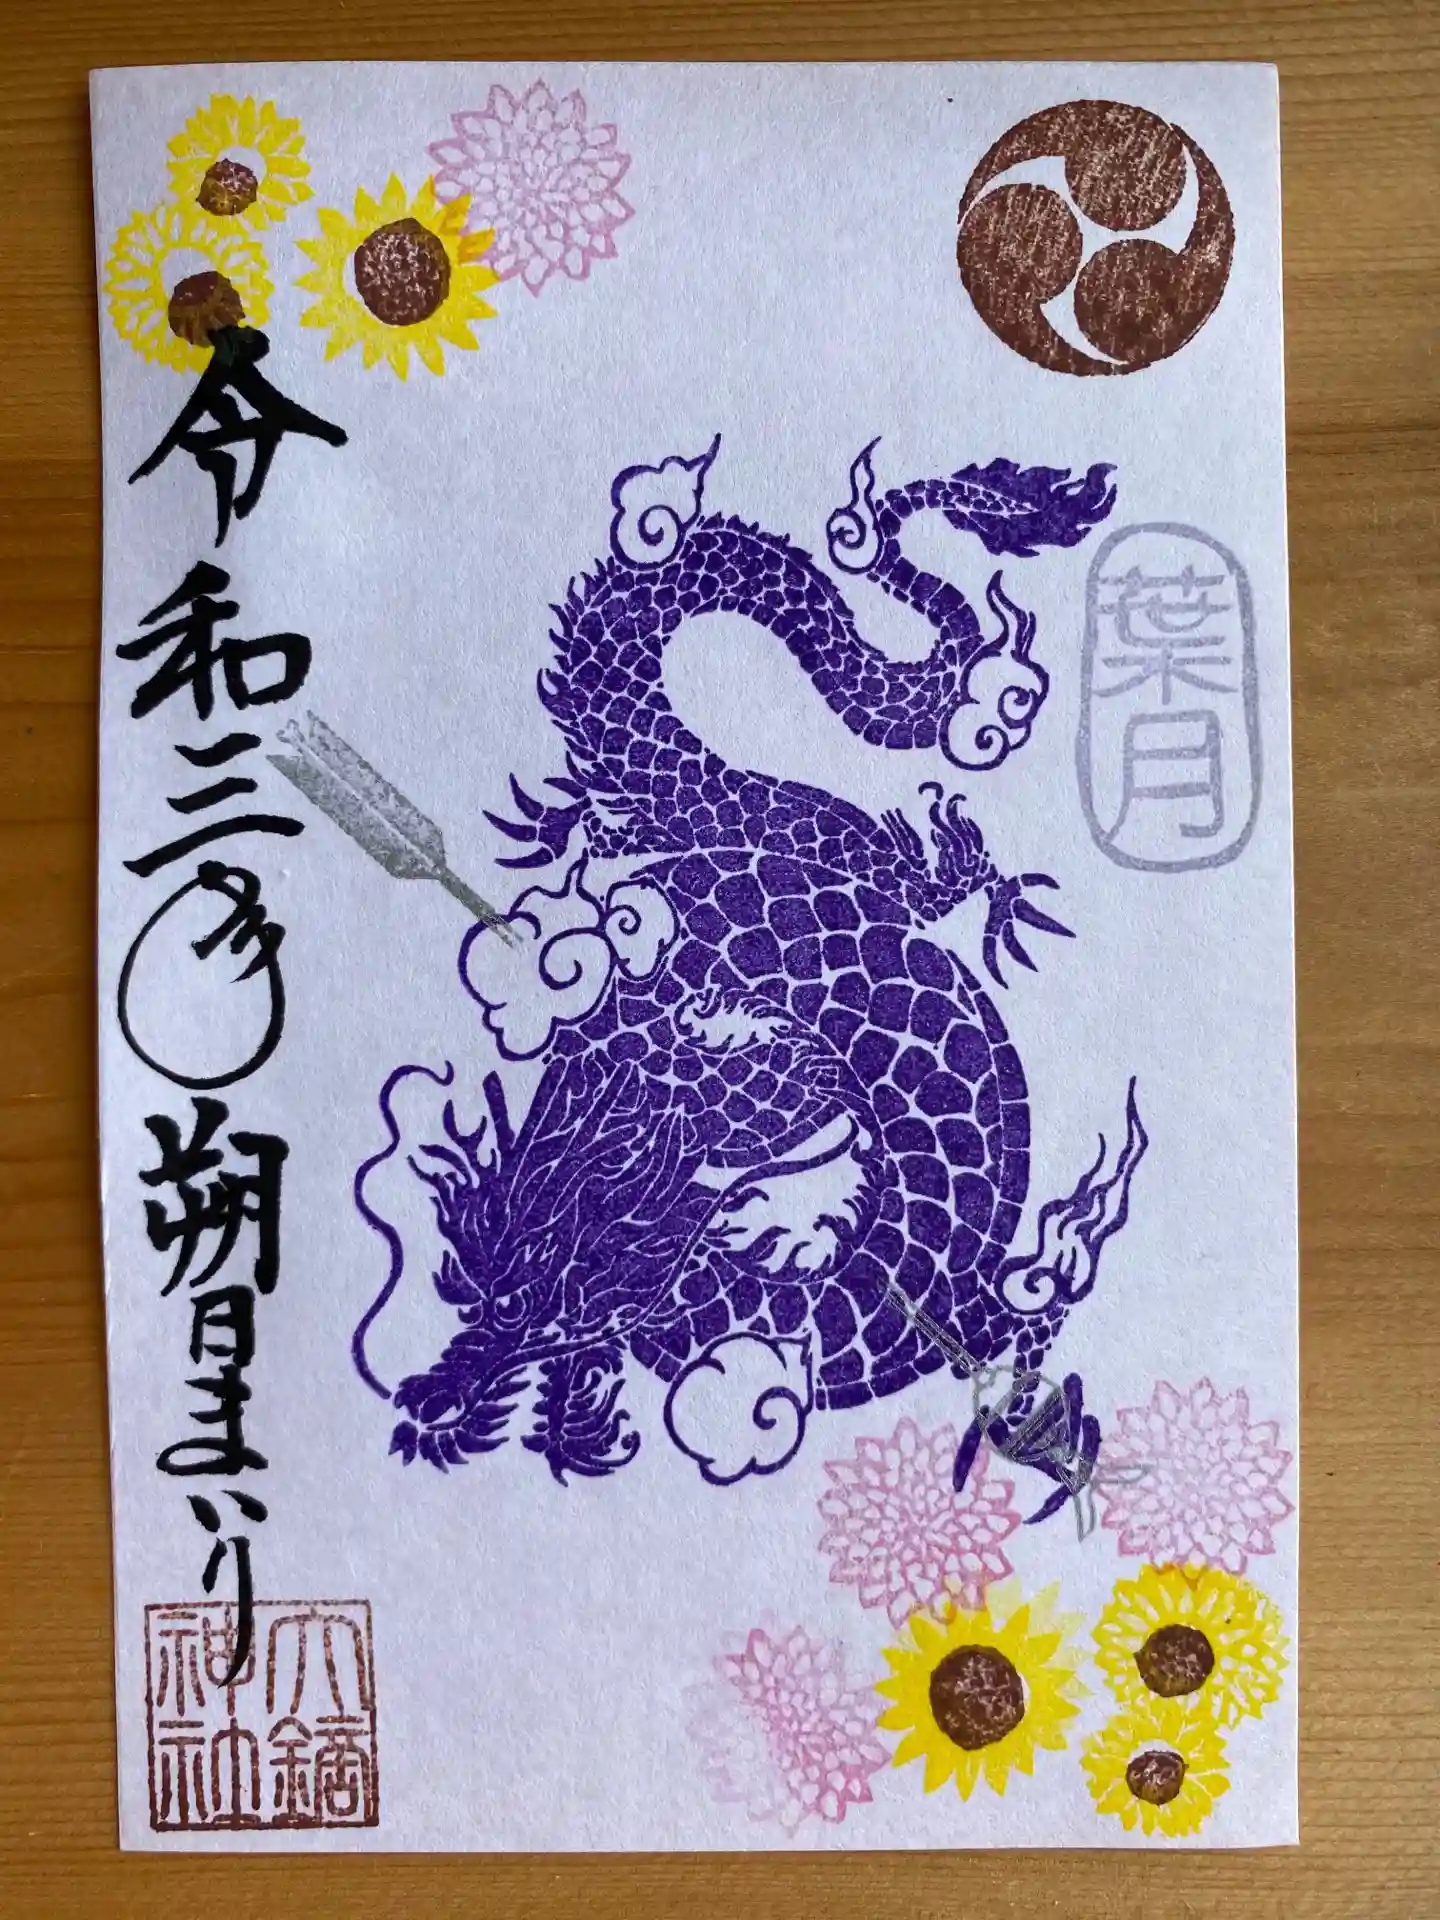 葉月
令和三年朔日まいり
六鏑
神社